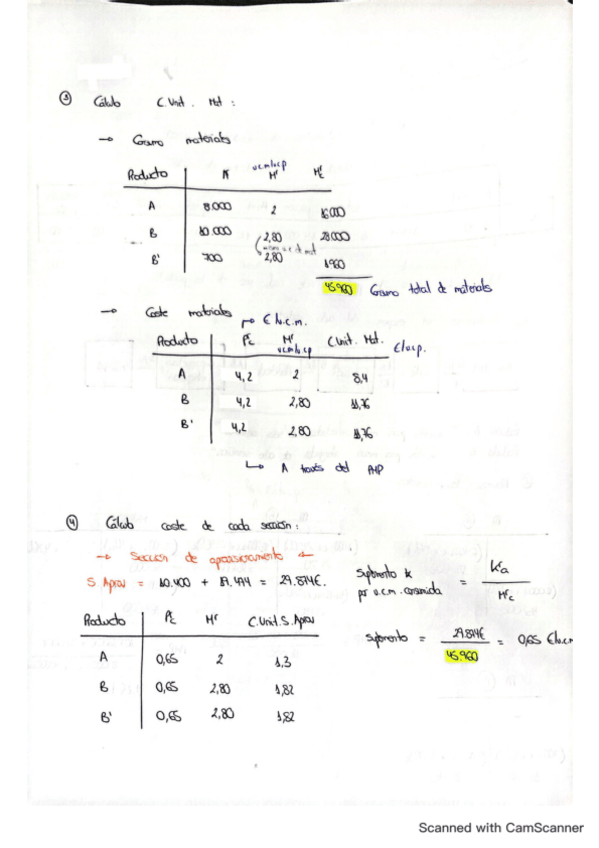 ③ Cálculo C.Unit. Mat:
→ Consumo materiales
Producto N u.c.m/u.c.p M'
A 8.000 2 16000
B 10.000 2,80 28000
B' 700 2,80 1960
45.960 Consumo total de materiales
→ Coste materiales
€/u.c.m.
Producto M' u.c.m/u.c.p C.Unit. Mat. €/u.c.p.
A 4,2 2 8,4
B 4,2 2,80 11,76
B' 4,2 2,80 11,76
↳ A través del PMP
④ Cálculo coste de cada sección:
→ Sección de aprovisionamiento
S. Aprov = 10.400 + 19.474 = 29.874€.
Suplemento
por u.c.m. consumida =
Producto M' C.Unit.S.Aprov
Suplemento = 29.874€ / 45.960 = 0,65 €/u.c.m
A 0,65 2 1,3
B 0,65 2,80 1,82
B' 0,65 2,80 1,82
Scanned with CamScanner